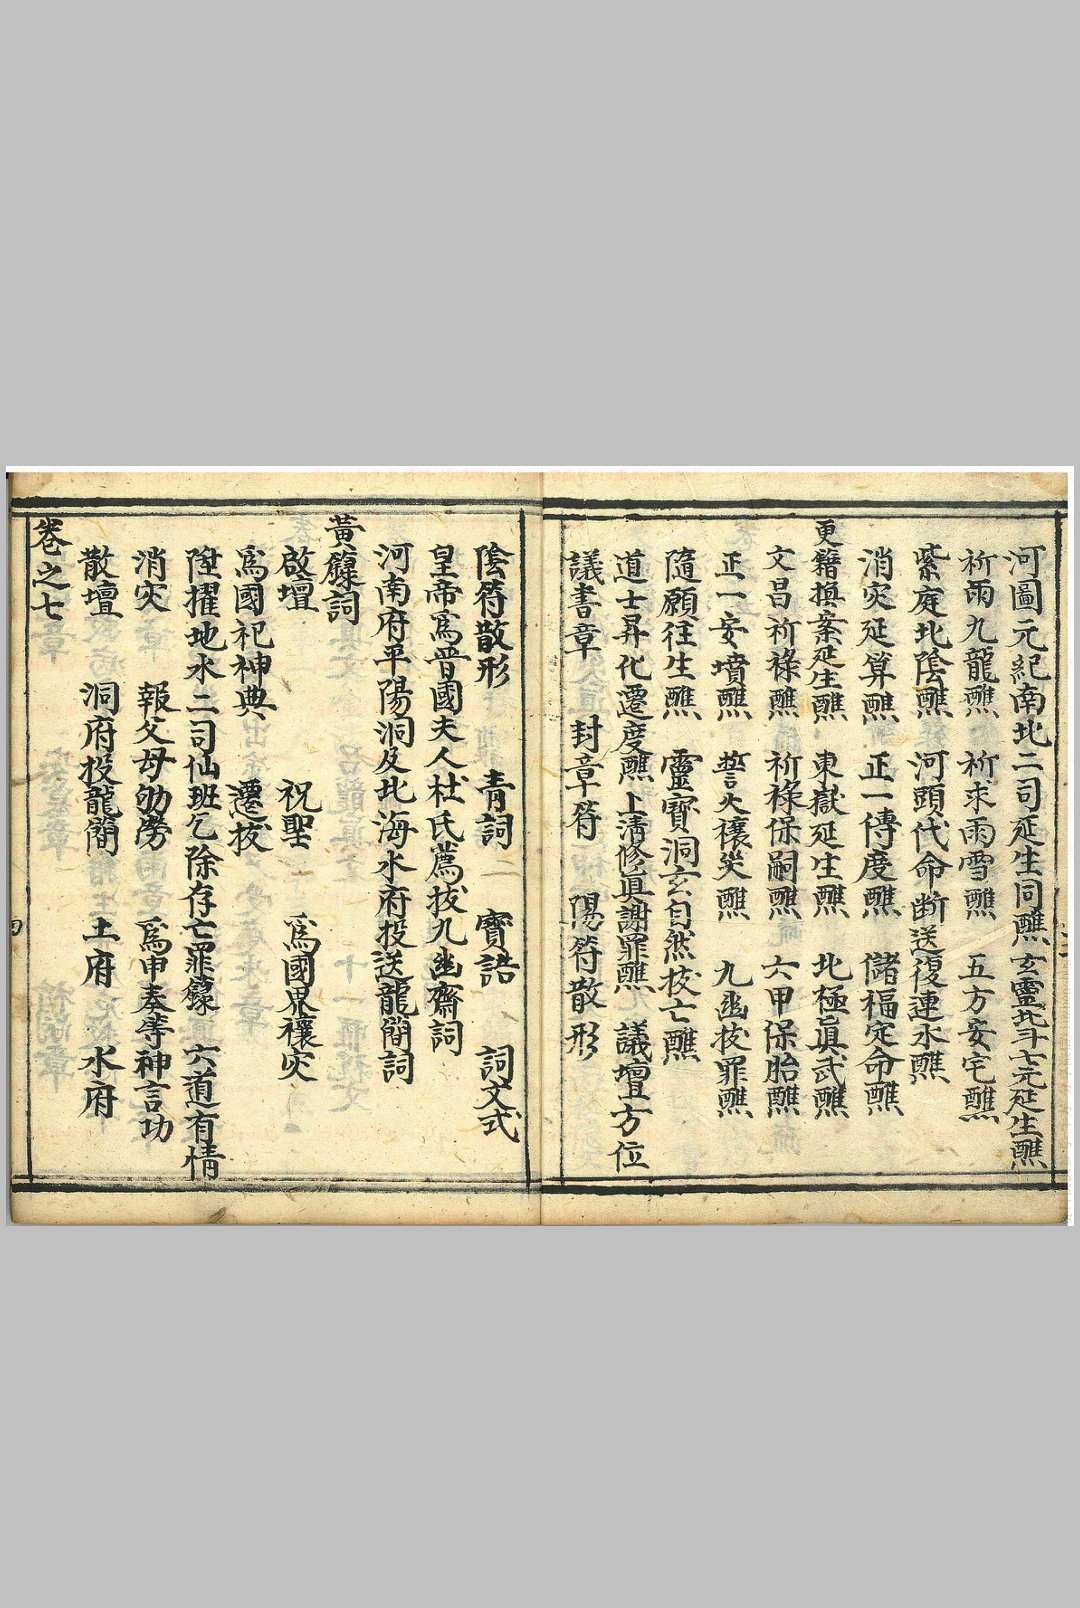 河圖元紀南北二司延生同醮玄靈北斗七元延生醮
祈雨九龍醮　祈求雨雪醮　五方安宅醮
紫庭北陰醮　河頭代命断送復連水醮
消灾延算醮　正一傳度醮　儲福定命醮
更籍換案延生醮　東嶽延生醮　北極眞武醮
文昌祈祿醮　祈祿保嗣醮　六甲保胎醮
正一安墳醮　誓火禳災醮　九幽拔罪醮
隨願往生醮　靈寳洞玄自然拔亡醮
道士昇化遷度醮　上清修眞謝罪醮　議壇方位
議書章　封章符　陽符散形
陰符散形　青詞　寳誥　詞文式
皇帝爲晋國夫人杜氏薦拔九幽齋詞
河南府平陽洞及北海水府投送龍簡詞
黄籙詞
啟壇　祝聖　爲國界禳灾
爲國祀神典　遷拔
陞擢地水二司仙班乞除存亡罪籙　六道有情
消灾　報父母劬勞　爲申奏等神言功
散壇　洞府投龍簡　土府　水府
卷之七
四